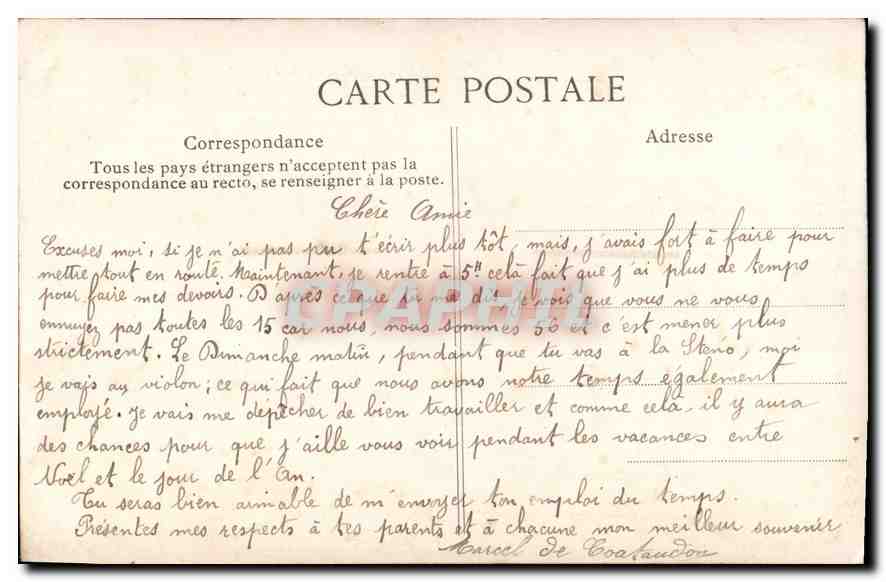 CARTE POSTALE
Correspondance
Adresse
Tous les pays étrangers n'acceptent pas la
correspondance au recto, se renseigner à la poste.
Chère Amie
Excuses moi, si je n'ai pas pu t'écrir plus tôt, mais, j'avais fort à faire pour
mettre tout en route. Maintenant, je rentre à 5H celà fait que j'ai plus de temps
pour faire mes devoirs. D'après ce que tu me dis je vois que vous ne vous
ennuyez pas toutes les 15 car nous, nous sommes 56 et c'est mener plus
strictement. Le Dimanche matin, pendant que tu vas à la Sténo, moi
je vais au violon; ce qui fait que nous avons notre temps également
employé. Je vais me dépêcher de bien travailler et comme celà il y aura
des chances pour que j'aille vous voir pendant les vacances entre
Noël et le jour de l'An.
Tu seras bien aimable de m'envoyer ton emploi du temps.
Présentes mes respects à tes parents et à chacune mon meilleur souvenir
Marcel de
CPAPHIL